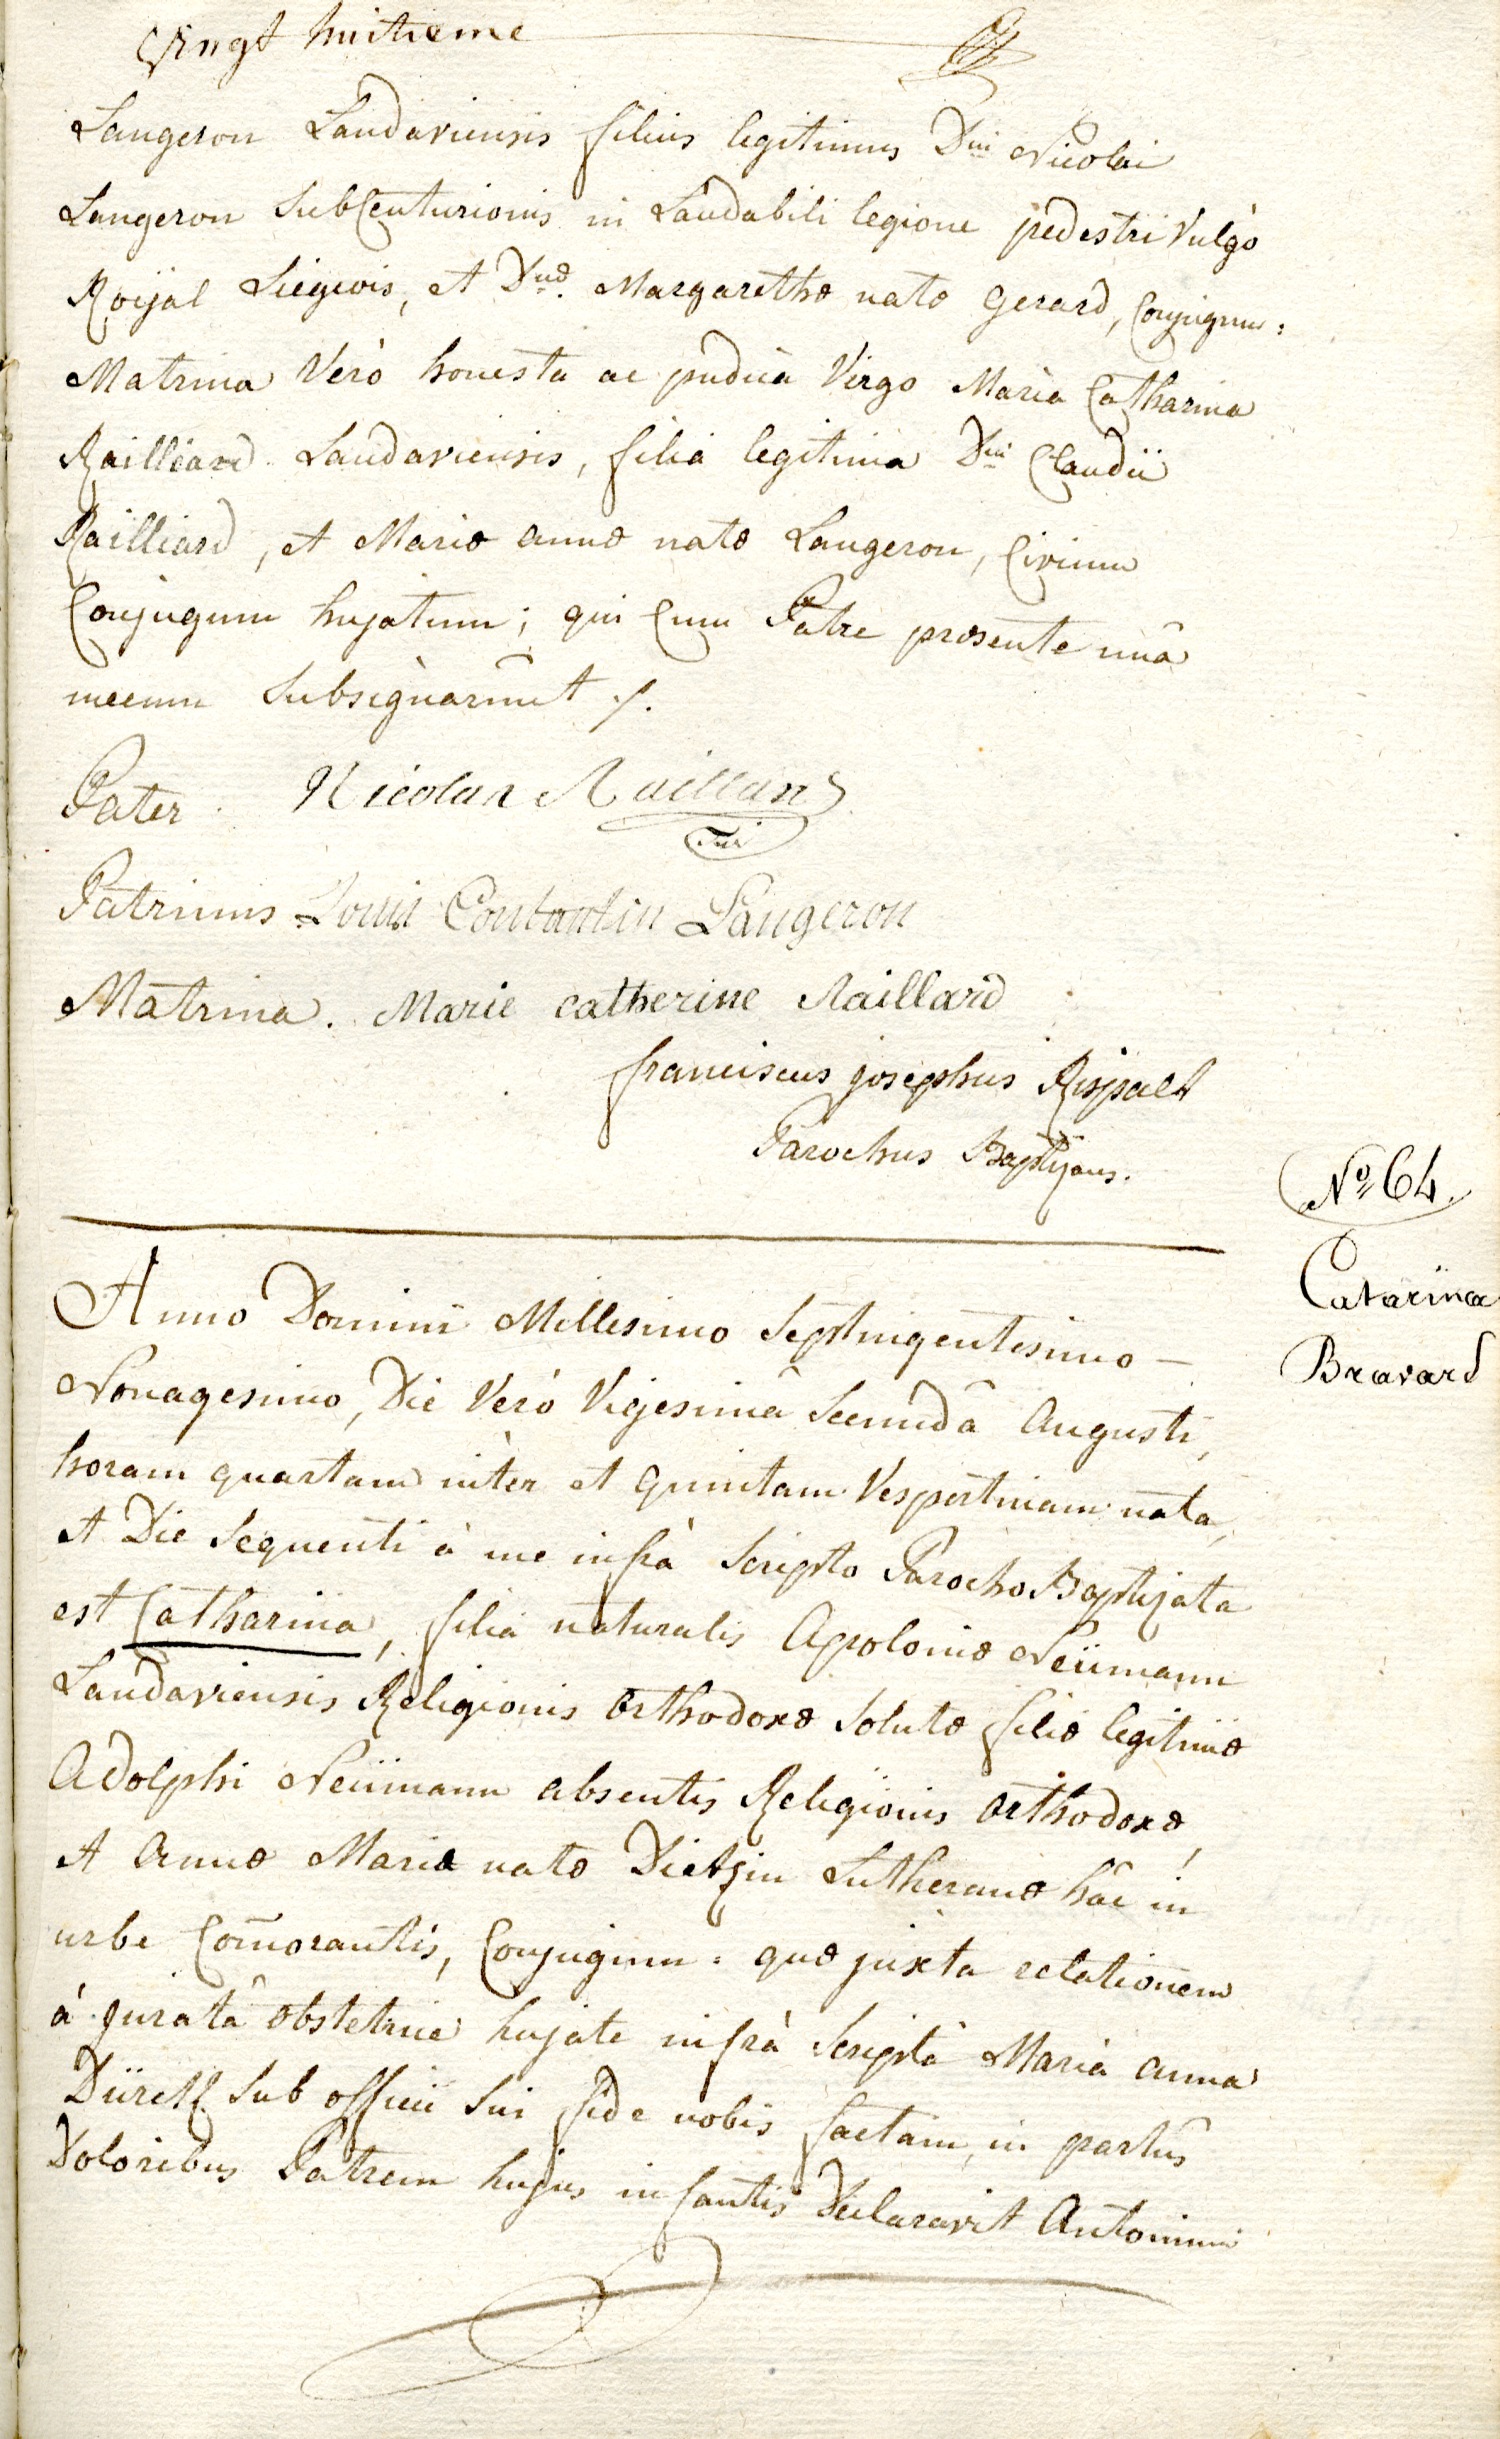 Vingt huitieme
Langeron Landaviensis filius legitimus Dni Nicolai
Langeron SubCenturionis in Laudabili legione pedestri Vulgò
Roÿal Liegeois, et Dnæ. Margarethæ natæ Gerard, Conjugum:
Matrina Verò honesta ac pudica Virgo Maria Catharina
Railliard Landaviensis, filia legitima Dni Claudii
Railliard, et Mariæ annæ natæ Langeron, Civium
Conjugum hujatum; qui Cum Patre præsente unà
mecum Subsignarunt ./.
Pater Nicolas Raillard
Patrinus Louis Constantin Langeron
Matrina. Marie catherine Raillard
franciscus josephus Rispalt
Parochus Baptizans.
No 64.
Catarina
Bravard
Anno Domini Millesimo Septingentesimo –
Nonagesimo, Die Verò Vigesimâ Secundâ Augusti,
horam quartam inter et quintam Vespertinam nata,
et Die Sequenti à me infrà Scripto Parocho Baptizata
est Catharina, filia naturalis Apoloniæ Neümann
Landaviensis Religionis Orthodoxæ Solutæ filiæ legitimæ
Adolphi Neümann absentis Religionis Orthodoxæ,
et Annæ Mariæ natæ Dietzin Lutheranæ hâc in
urbe Com̃orantis, Conjugum: quæ juxta relationem
à juratâ Obstetrice hujate infrà Scriptâ Mariâ anna
Sub officii Sui fide nobis factam, in partûs
Doloribus Patrem hujus infantis Declaravit Antonium